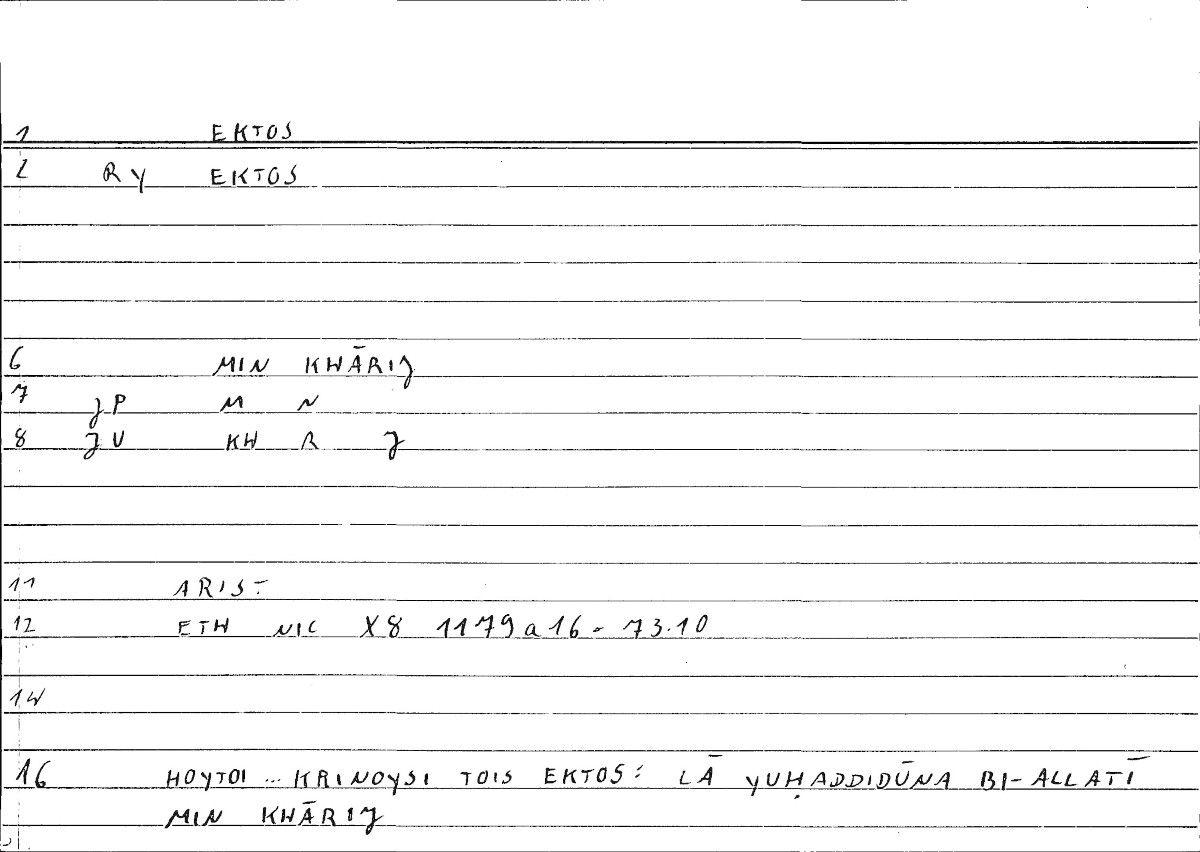 1 EKTOS
2 RY EKTOS
6 MIN KHĀRIJ
7 JP M N
8 JU KH R J
11 ARIST
12 ETH NIC X8 1179a16 = 73.10
14
16 HOYTOI ... KRINOYSI TOIS EKTOS : LĀ YUḤADDIDŪNA BI-ALLATĪ
MIN KHĀRIJ